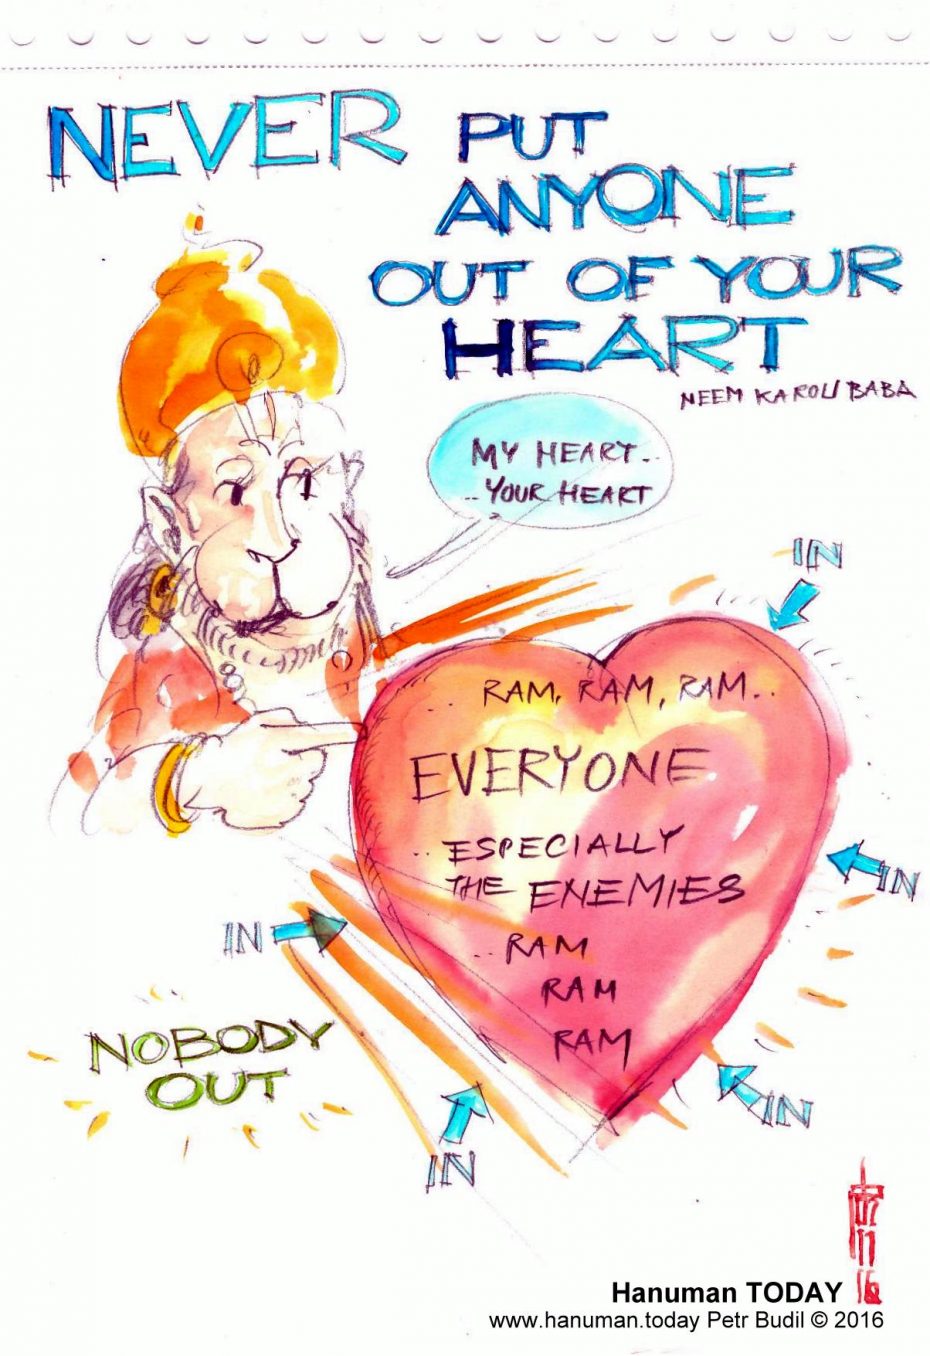 NEVER PUT
ANYONE
OUT OF YOUR
HEART
NEEM KAROLI BABA
MY HEART..
..YOUR HEART
IN
.. RAM, RAM, RAM..
EVERYONE
..ESPECIALLY
THE ENEMIES
IN
IN
..RAM
RAM
RAM
NOBODY
OUT
IN
IN
Hanuman TODAY
www.hanuman.today Petr Budil © 2016